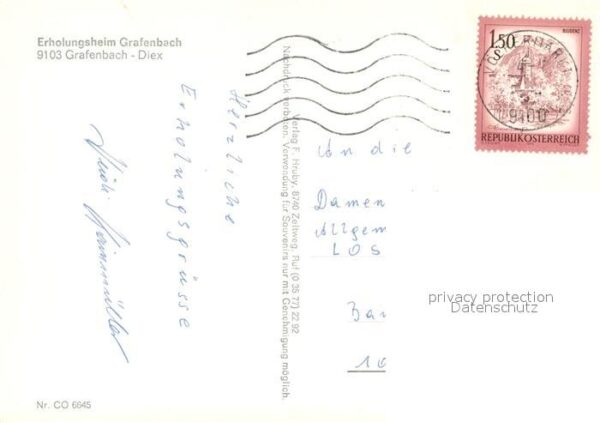 Erholungsheim Grafenbach
9103 Grafenbach - Diex
Herzliche
Erholungsgrüsse
Nr. CO 6645
Verlag F. Hruby, 8740 Zeltweg, Ruf (0 35 77) 22 92
Nachdruck verboten. Verwendung für Souvenirs nur mit Genehmigung möglich.
1.50
S
BLUDENZ
9100
REPUBLIK ÖSTERREICH
An die
Damen
Allgem
LOS
Bar
10
privacy protection
Datenschutz